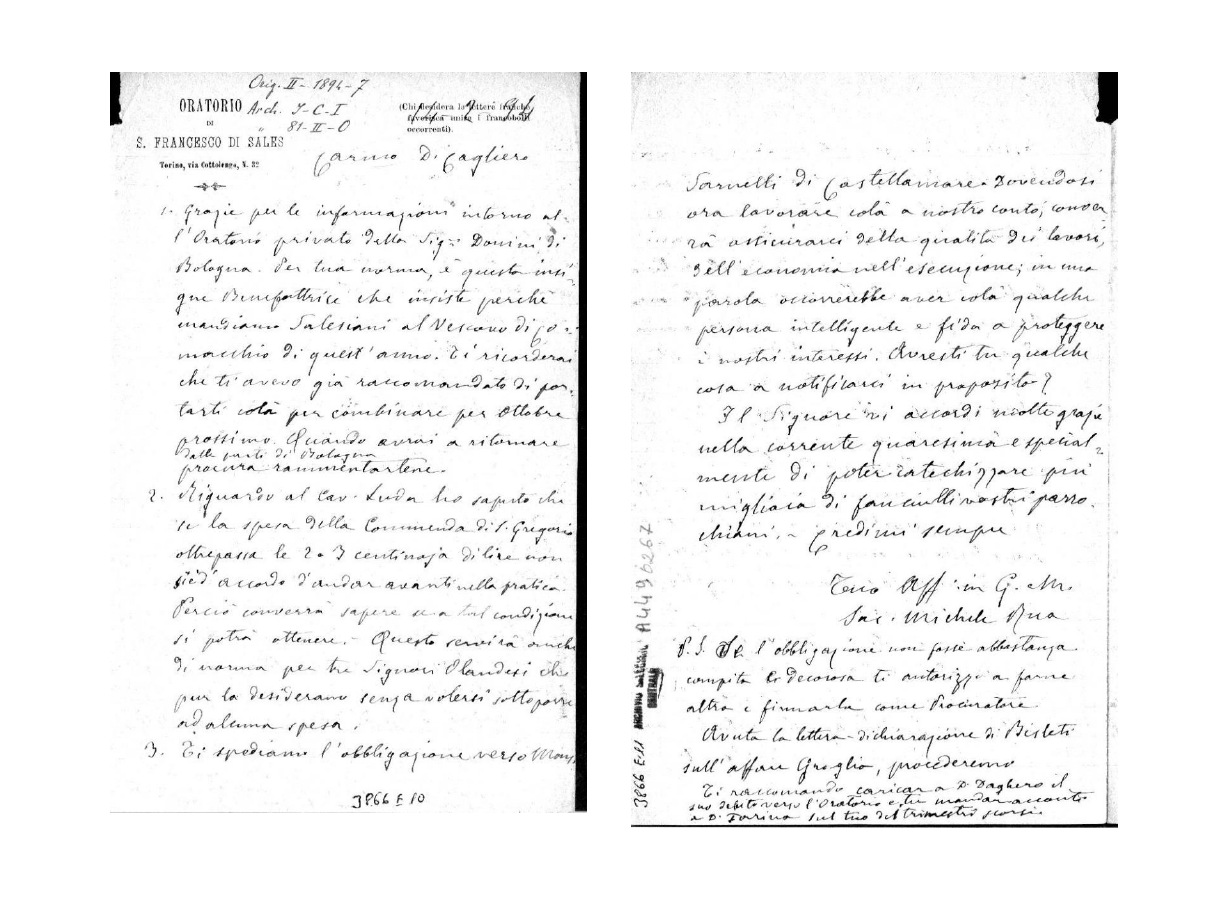 Orig. II - 1894 - 7
ORATORIO Arch. J-C-I
DI
81-II-O
S. FRANCESCO DI SALES
Torino, via Cottolengo, N. 32
(Chi desidera le lettere franche
favorisca unire i francobolli
occorrenti).
Carmo D. Cagliero
1. Grazie per le informazioni intorno al-
l'Oratorio privato della Sig.ª Donini di
Bologna. Per tua norma, è questa insi-
gne Benefattrice che insiste perchè
mandiamo Salesiani al Vescovo di Co-
macchio di quest'anno. Ti ricorderai
che ti avevo già raccomandato di por-
tarti colà per combinare per Ottobre
prossimo. Quando avrai a ritornare
dalle parti di Bologna
procura rammentartene.
2. Riguardo al Cav. Luda ho saputo che
se la spesa della Commenda di S. Gregorio
oltrepassa le 2 o 3 centinaja di lire non
si è d'accordo d'andar avanti nella pratica.
Perciò converrà sapere se a tal condizione
si potrà ottenere. - Questo servirà anche
di norma per tre Signori Olandesi che
pur la desiderano senza volersi sottoporre
ad alcuna spesa.
3. Ti spediamo l'obbligazione verso Mons.
3866 E 10
Sarnelli di Castellamare. Dovendosi
ora lavorare colà a nostro conto, conver
rà assicurarci della qualità dei lavori,
dell'economia nell'esecuzione; in una
parola occorrerebbe aver colà qualche
persona intelligente e fida a proteggere
i nostri interessi. Avresti tu qualche
cosa a notificarci in proposito?
Il Signore vi accordi molte grazie
nella corrente quaresima e special-
mente di poter catechizzare più
migliaia di fanciulli vostri parro-
chiani. - Credimi sempre
Tuo Aff. in G. e M.
Sac. Michele Rua
P.S. Se l'obbligazione non fosse abbastanza
compita e decorosa ti autorizzo a farne
altra e firmarla come Procuratore.
Avuta la lettera-dichiarazione di Bisleti
sull'affare Groglio, procederemo
Ti raccomando caricar a D. Daghero il
suo debito verso l'Oratorio e tu mandar acconto
a D. Farina sul tuo del trimestre scorso.
3866 E 11
ARCHIVIO SALESIANO
CENTRALE
A4496267